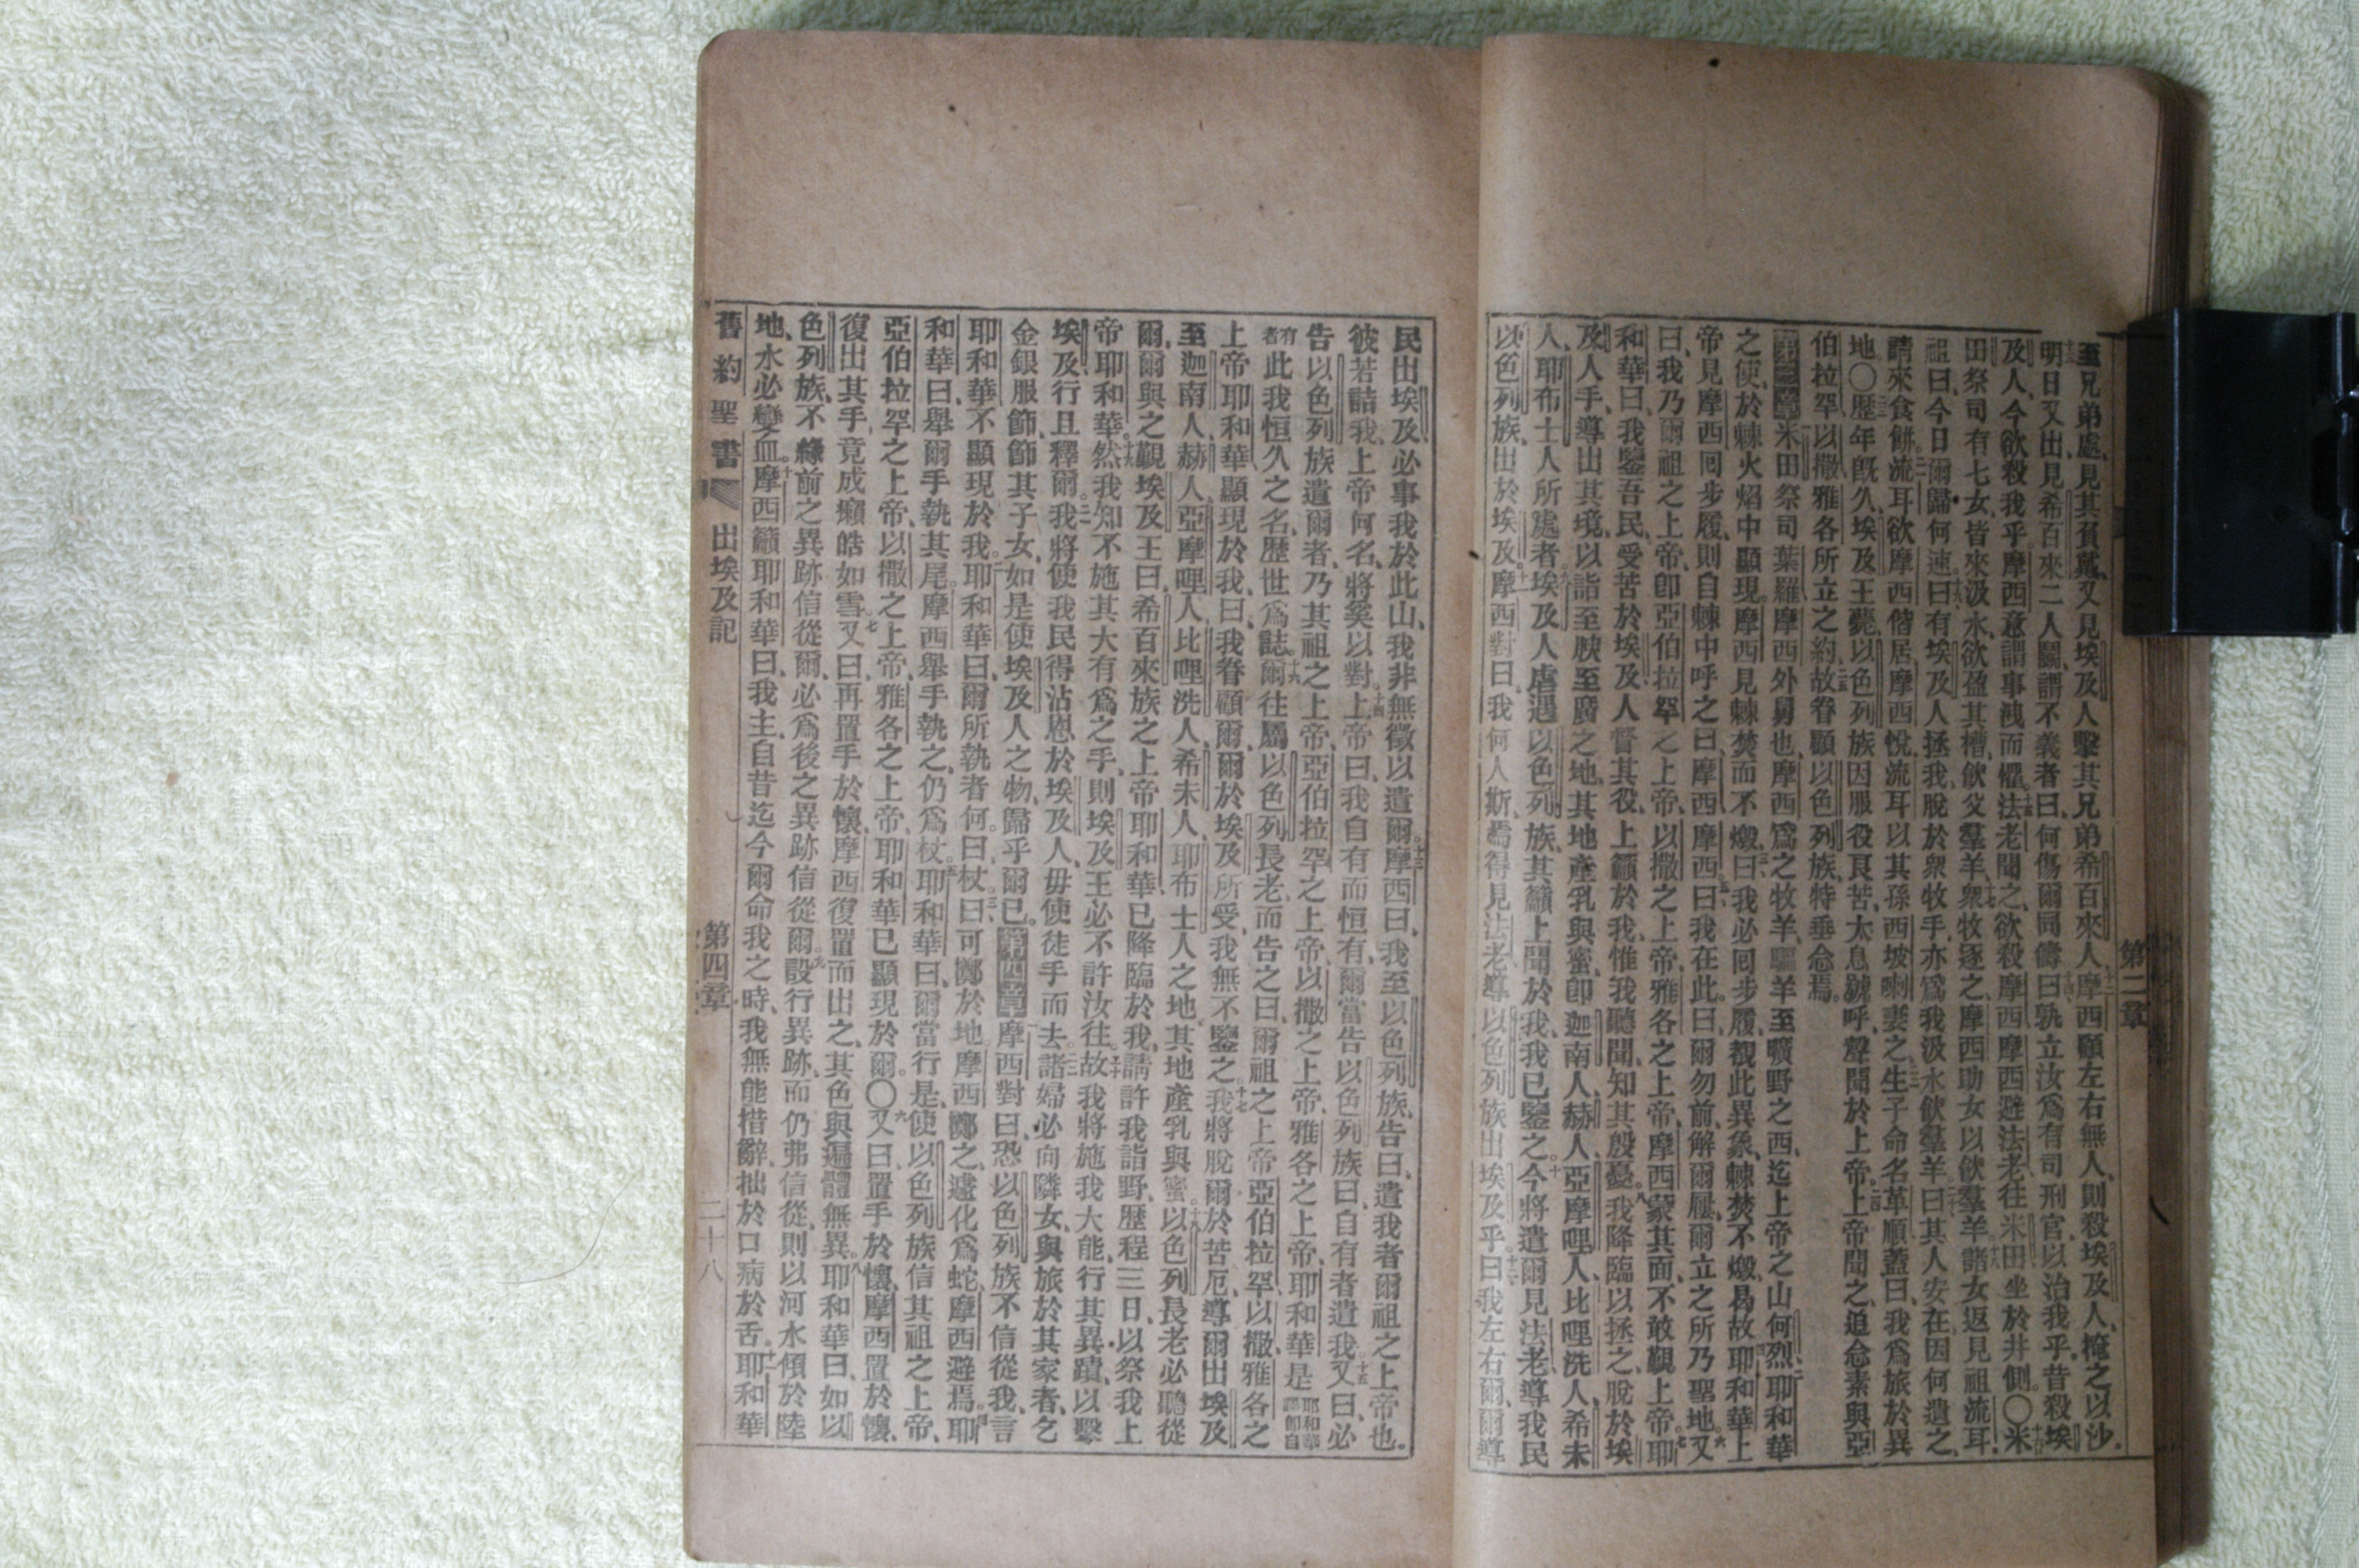 第二章
至兄弟處、見其負戴、又見埃及人擊其兄弟希百來人、十二摩西顧左右無人、則殺埃及人、掩之以沙。
十三明日又出、見希百來二人鬬、謂不義者曰、何傷爾同儔、十四曰、孰立汝爲有司刑官、以治我乎、昔殺埃
及人、今欲殺我乎、摩西意謂事洩而懼。十五法老聞之、欲殺摩西、摩西避法老、往米田坐於井側。〇十六米
田祭司有七女、皆來汲水、欲盈其槽、飲父羣羊、十七衆牧逐之、摩西助女、以飲羣羊。十八諸女返見祖流耳、
祖曰、今日爾歸何速。十九曰、有埃及人拯我、脫於衆牧手、亦爲我汲水飲羣羊、二十曰、其人安在、因何遺之、
請來食餅、二一流耳欲摩西偕居、摩西悅、流耳以其孫西坡喇妻之、二二生子命名革順、蓋曰、我爲旅於異
地。〇二三歷年旣久、埃及王薨、以色列族因服役艮苦、太息號呼、聲聞於上帝。二四上帝聞之、追念素與亞
伯拉罕、以撒、雅各所立之約、二五故眷顧以色列族、特垂念焉。
第三章米田祭司葉羅、摩西外舅也、摩西爲之牧羊、驅羊至曠野之西、迄上帝之山何烈、二耶和華
之使、於棘火焰中顯現、摩西見棘焚而不燬、三曰、我必回步履、觀此異象、棘焚不燬、曷故、四耶和華上
帝見摩西回步履、則自棘中呼之曰、摩西、摩西。曰、我在此。五曰、爾勿前、解爾屨、爾立之所、乃聖地。六又
曰、我乃爾祖之上帝、卽亞伯拉罕之上帝、以撒之上帝、雅各之上帝、摩西蒙其面、不敢覲上帝。七耶
和華曰、我鑒吾民、受苦於埃及人督其役、上籲於我、惟我聽聞、知其殷憂。八我降臨以拯之、脫於埃
及人手、導出其境、以詣至腴至廣之地、其地產乳與蜜、卽迦南人、赫人、亞摩哩人、比哩洗人、希未
人、耶布士人所處者。九埃及人虐遇以色列族、其籲上聞於我、我已鑒之。十今將遣爾見法老、導我民
以色列族、出於埃及。十一摩西對曰、我何人斯、焉得見法老、導以色列族出埃及乎。十二曰、我左右爾、爾導
民出埃及、必事我於此山、我非無徵以遣爾。十三摩西曰、我至以色列族、告曰、遣我者爾祖之上帝也。
彼若詰我、上帝何名、將奚以對。十四上帝曰、我自有而恒有、爾當告以色列族曰、自有者遣我。十五又曰、必
告以色列族遣爾者、乃其祖之上帝、亞伯拉罕之上帝、以撒之上帝、雅各之上帝、耶和華是耶和華譯卽自
有者此我恒久之名、歷世爲誌。十六爾往屬以色列長老、而告之曰、爾祖之上帝、亞伯拉罕、以撒、雅各之
上帝耶和華顯現於我曰、我眷顧爾、爾於埃及所受、我無不鑒之。十七我將脫爾於苦厄、導爾出埃及
至迦南人、赫人、亞摩哩人、比哩洗人、希未人、耶布士人之地、其地產乳與蜜。十八以色列長老必聽從
爾、爾與之覲埃及王曰、希百來族之上帝耶和華已降臨於我、請許我詣野、歷程三日、以祭我上
帝耶和華。十九然我知不施其大有爲之手、則埃及王必不許汝往。二十故我將施我大能、行其異蹟、以擊
埃及、行且釋爾。二一我將使我民得沾恩於埃及人、毋使徒手而去。二二諸婦必向隣女、與旅於其家者、乞
金銀服飾、飾其子女、如是使埃及人之物、歸乎爾已。第四章摩西對曰、恐以色列族不信從我、言
耶和華不顯現於我。二耶和華曰、爾所執者何。曰、杖。三曰、可擲於地。摩西擲之、遽化爲蛇、摩西避焉。四耶
和華曰、舉爾手執其尾。摩西舉手執之、仍爲杖。五耶和華曰、爾當行是、使以色列族信其祖之上帝、
亞伯拉罕之上帝、以撒之上帝、雅各之上帝、耶和華已顯現於爾。〇六又曰、置手於懷、摩西置於懷、
復出其手、竟成癩、皓如雪。七又曰、再置手於懷、摩西復置而出之、其色與遍體無異。八耶和華曰、如以
色列族、不緣前之異跡信從爾、必爲後之異跡信從爾。九設行異跡、而仍弗信從、則以河水傾於陸
地、水必變血。十摩西籲耶和華曰、我主、自昔迄今、爾命我之時、我無能措辭、拙於口、病於舌。十一耶和華
舊約聖書 出埃及記 第四章 二十八